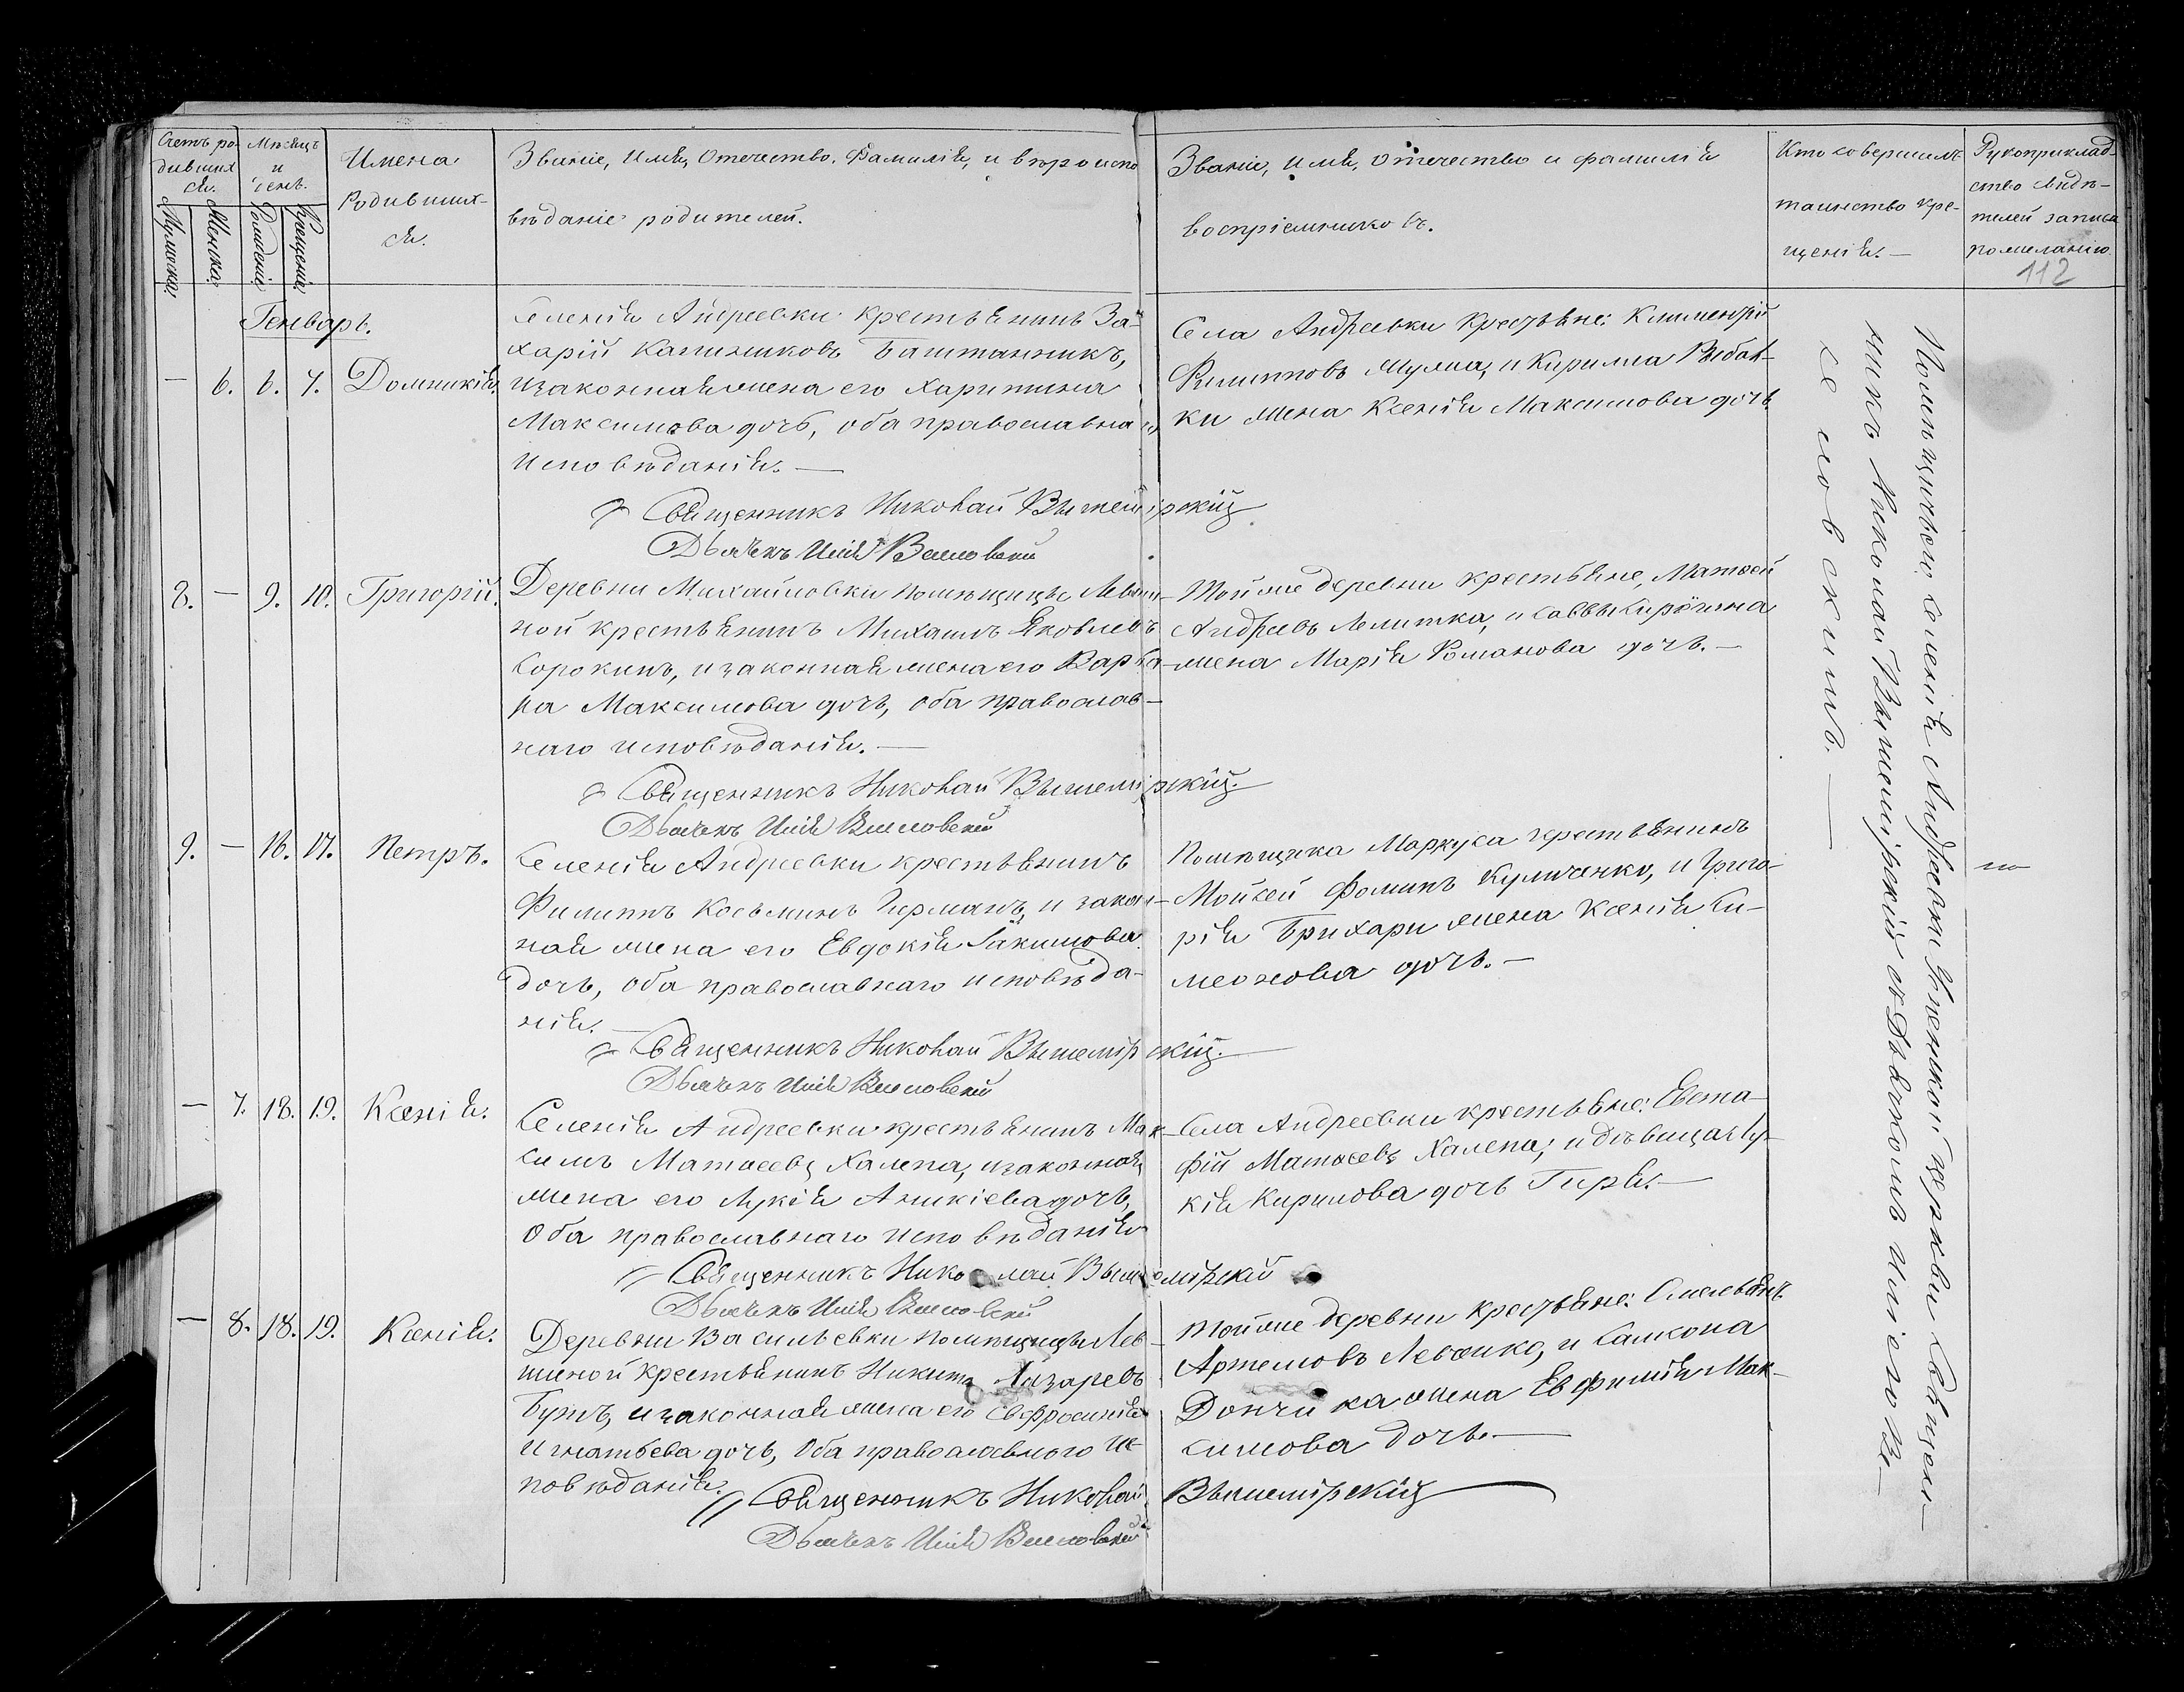 Счетъ ро-
дивших
ся.
Мужеска.
Женска.
Мѣсяцъ
и
день.
Рожденія.
Крещенія.
Имена
Родивших-
ся.
Званіе, Имя, Отечество, Фамилія, и вѣроиспо
вѣданіе родителей.
Званіе, имя, отечество и фамилія
воспріемниковъ.
Кто совершилъ
таинство кре-
щенія. —
Рукоприклад-
ство свидѣ-
телей записи
по желанію.
112
Генварь.
— 6. 6. 7. Домникія.
Селенія Андреевки крестьянинъ За-
харій Калиниковъ Баштанникъ,
и законная жена его Харитина
Максимова дочь, оба православнаго
исповѣданія. —
Священникъ Николай Вышемірскій
Дьячекъ Илія
Села Андреевки Крестьяне: Климентій
Филипповъ Мулма, и Кирилла Рыбал-
ки жена Ксенія Максимова дочь.
8. — 9. 10. Григорій.
Деревни Михайловки помѣщицы Левши-
ной крестьянинъ Михаилъ Яковлевъ
Сорокинъ, и законная жена его Варва-
ра Максимова дочь, оба православ-
наго исповѣданія. —
Священникъ Николай Вышемірскій.
Дьячекъ Илія
Той же деревни крестьяне, Матвей
Андреевъ Лелитка, и Саввы
жена Марія Романова дочь. —
9. — 16. 17. Петръ.
Селенія Андреевки крестьянинъ
Филиппъ Косьминъ Германъ, и закон-
ная жена его Евдокія Іакимова
дочь, оба православнаго исповѣда-
нія. —
Священникъ Николай Вышемірскій.
Дьячекъ Илія
Помѣщика Маркуса крестьянинъ
Мойсей Фоминъ Куличенко, и Григо-
рія Брихари жена Ксенія Си-
меонова дочь. —
— 7. 18. 19. Ксенія.
Селенія Андреевки крестьянинъ Мак-
симъ Матвеевъ Халепа, и законная
жена его Лукія Аникіева дочь,
оба православнаго исповѣданія
Священникъ Николай Вышемірскій
Дьячекъ Илія
Села Андреевки крестьяне: Евста-
фій Матвеевъ Халепа; и дѣвица Лу-
кія Кирилова дочь Гиря. —
— 8. 18. 19. Ксенія.
Деревни Васильевки помѣщицы Лев-
шиной крестьянинъ Никита Лазаревъ
Бутъ, и законная жена его Евфросинія
Игнатьева дочь, оба православного ис-
повѣданія.
Священникъ Николай Вышемірскій
Дьячекъ Илія
Той же деревни крестьяне: Емельянъ
Артемовъ Левченко, и Самсона
Дончика жена Евфимія Мак-
симова дочь. —
Помѣщичьего селенія Андреевки Успенской церкви Священ-
никъ Николай Вышемірскій съ Дьячкомъ Иліею В-
словскимъ. —